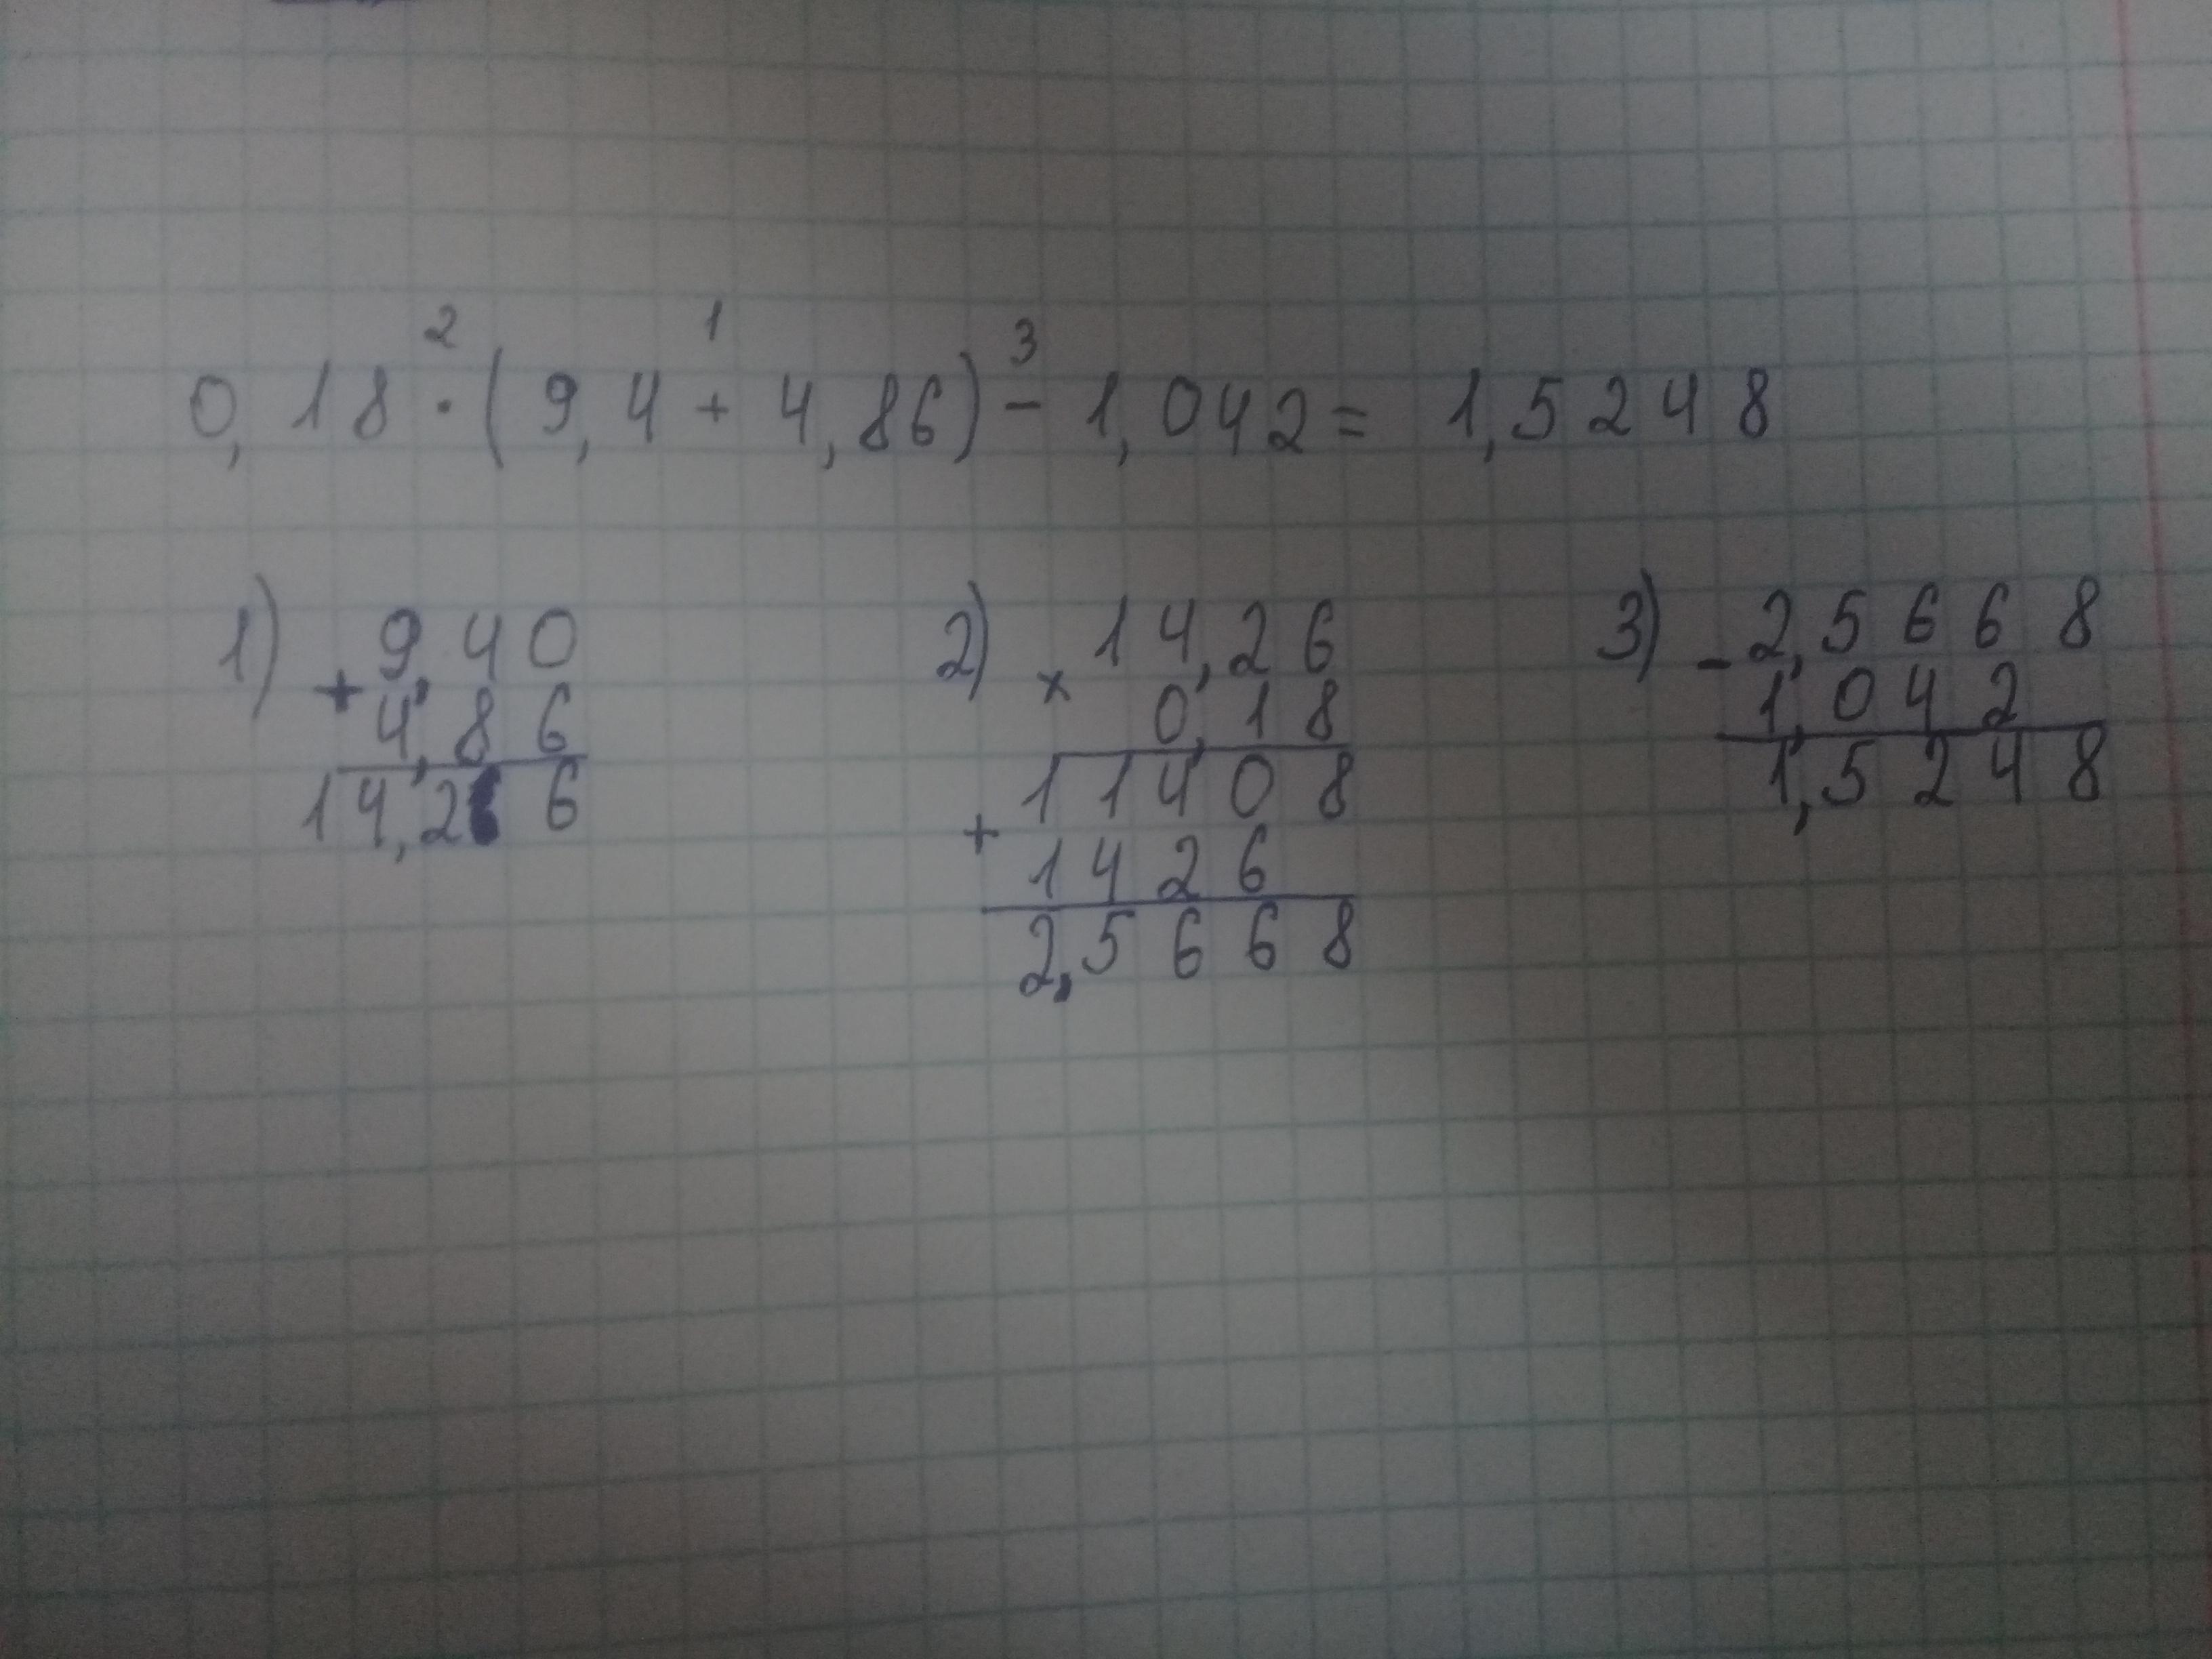 2 1 3
0,18 · (9,4 + 4,86) - 1,042 = 1,5248
1) + 9,40
4,86
14,26
2) × 14,26
0,18
+ 11408
1426
2,5668
3) - 2,5668
1,042
1,5248